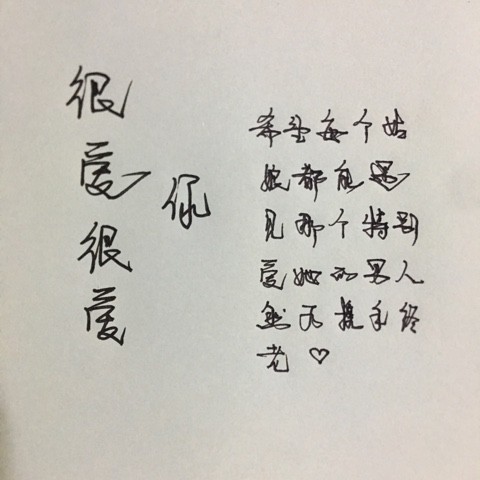 很爱很爱
你
希望每个姑
娘都能遇
见那个特别
爱她的男人
然后携手终
老♡